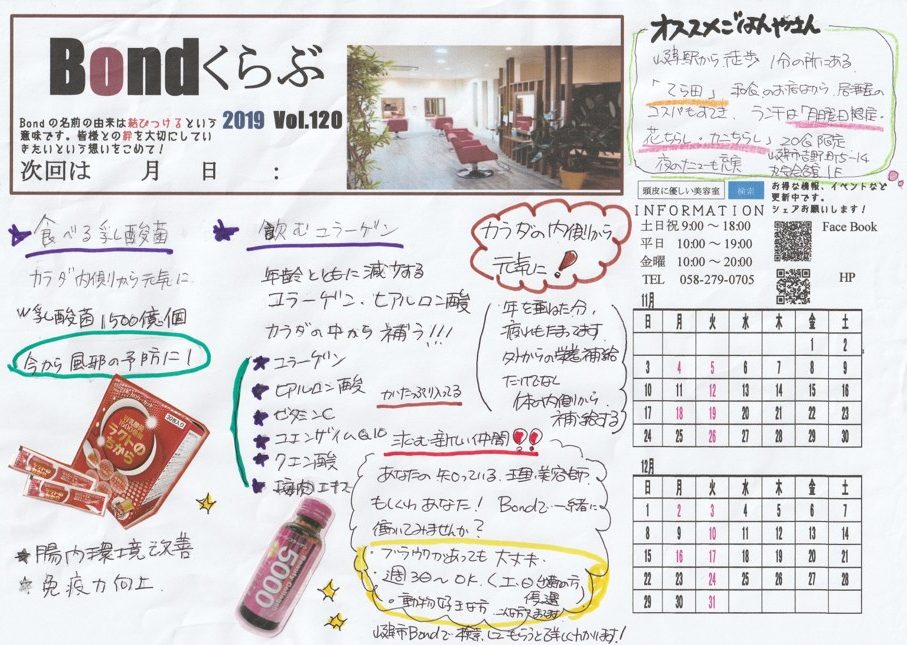 Bondくらぶ
2019 Vol.120
Bondの名前の由来は結びつけるという
意味です。皆様との絆を大切にしてい
きたいという想いをこめて!
次回は 月 日 :
オススメごはんやさん
岐阜駅から徒歩 1分の所にある
「てら田」 和食のお店
ランチは「月曜日限定
20食限定
夜のメニューも充実
丸会館 1F
頭皮に優しい美容室 検索
お得な情報、イベントなど
更新中です。
シェアお願いします!
INFORMATION
土日祝 9:00 ~ 18:00
平日 10:00 ~ 19:00
金曜 10:00 ~ 20:00
TEL 058-279-0705
Face Book
HP
食べる乳酸菌
カラダ内側から元気に
乳酸菌 1500億個
今から風邪の予防に!
30包入り
乳酸菌
1500億個
ラクトの
ちから
腸内環境改善
免疫力向上
飲むコラーゲン
年齢とともに減少する
コラーゲン・ヒアルロン酸
カラダの中から補う!!!
コラーゲン
ヒアルロン酸
ビタミンC
コエンザイムQ10
クエン酸
梅肉エキス
5000
カラダの内側から
元気に!
年を重ねた分、
疲れもたまってます
外からの栄養補給
だけでなく
体の内側から
補給する
求む新しい仲間!!
あなたの知っている、理・美容師
もしくは、あなた! Bondで一緒に
働いてみませんか?
・ブランクがあっても大丈夫
・週3日~OK
・動物好きな方
11月
日 月 火 水 木 金 土
1 2
3 4 5 6 7 8 9
10 11 12 13 14 15 16
17 18 19 20 21 22 23
24 25 26 27 28 29 30
12月
日 月 火 水 木 金 土
1 2 3 4 5 6 7
8 9 10 11 12 13 14
15 16 17 18 19 20 21
22 23 24 25 26 27 28
29 30 31